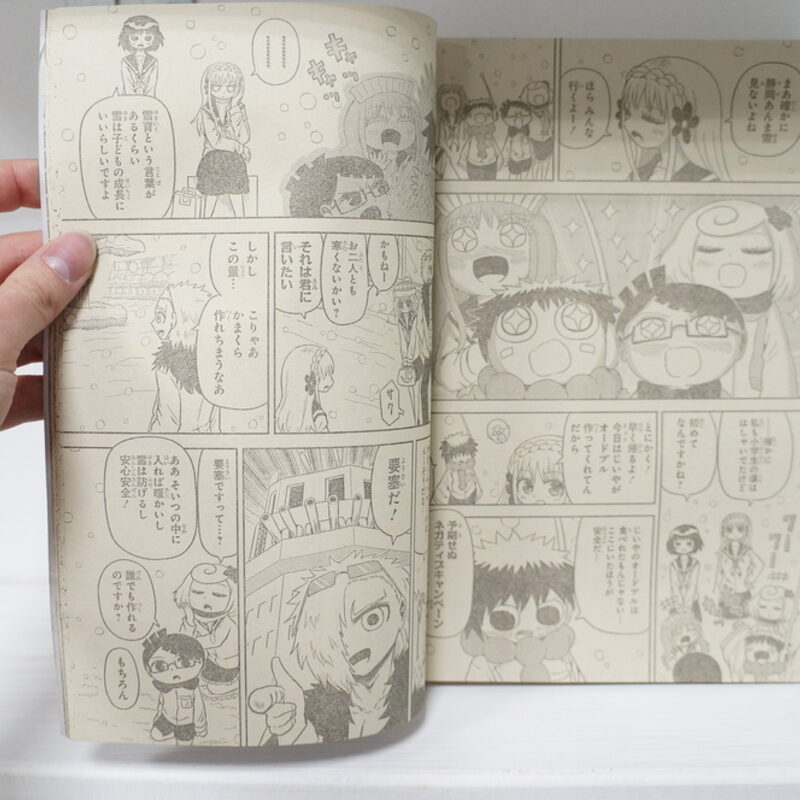 まあ確かに
静岡あんま雪
見ないよね
ほらみんな
行くよー！
確かに
私も小学生の頃は
はしゃいでたけど
初めて
なんですかね？
とにかく！
早く帰るよ！
今日はじいやが
オードブル
作ってくれてん
だから
じいやのオードブルは
食べれたもんじゃない
ここにいたほうが
安全だ…
予期せぬ
ネガティブキャンペーン
キャッ
キャッ
雪育という言葉が
あるくらい
雪は子どもの成長に
いいらしいですよ
かもねー
お二人とも
寒くないかい？
それは君に
言いたい
サク
しかし
この量…
こりゃあ
かまくら
作れちまうなあ
要塞だ！
要塞ですって…？
ああそいつの中に
入れば暖かいし
雪は防げるし
安心安全！
誰でも作れる
のですか？
もちろん